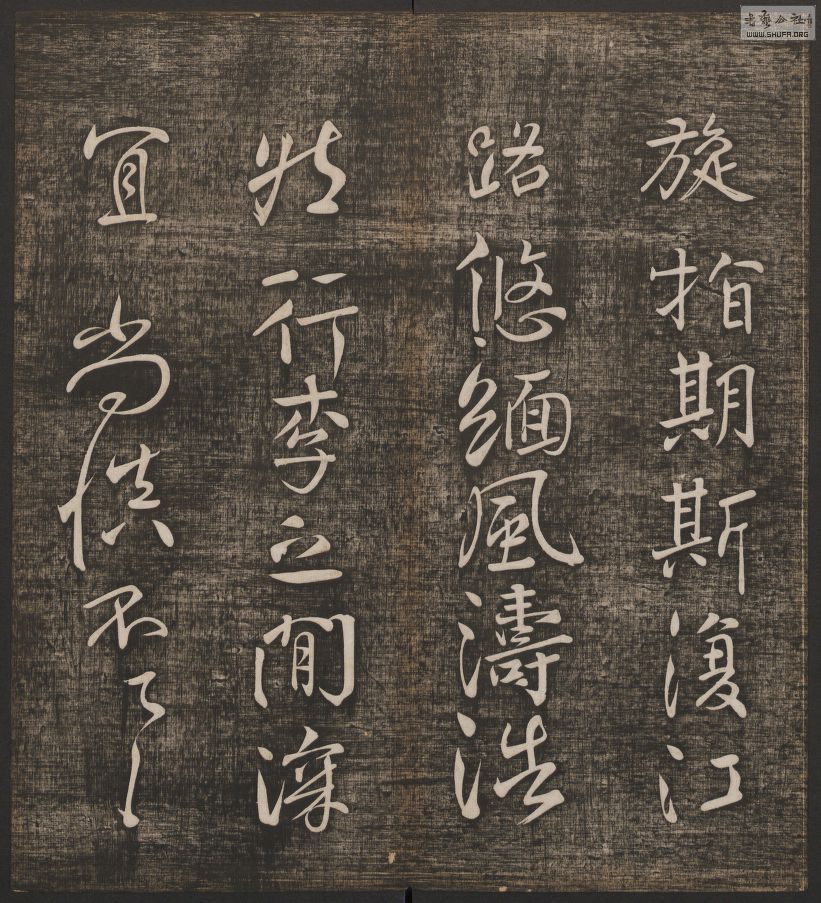 旋指期斯復江
路悠緬風濤浩
然行李之間深
宜尚慎不
书艺公社
WWW.SHUFA.ORG